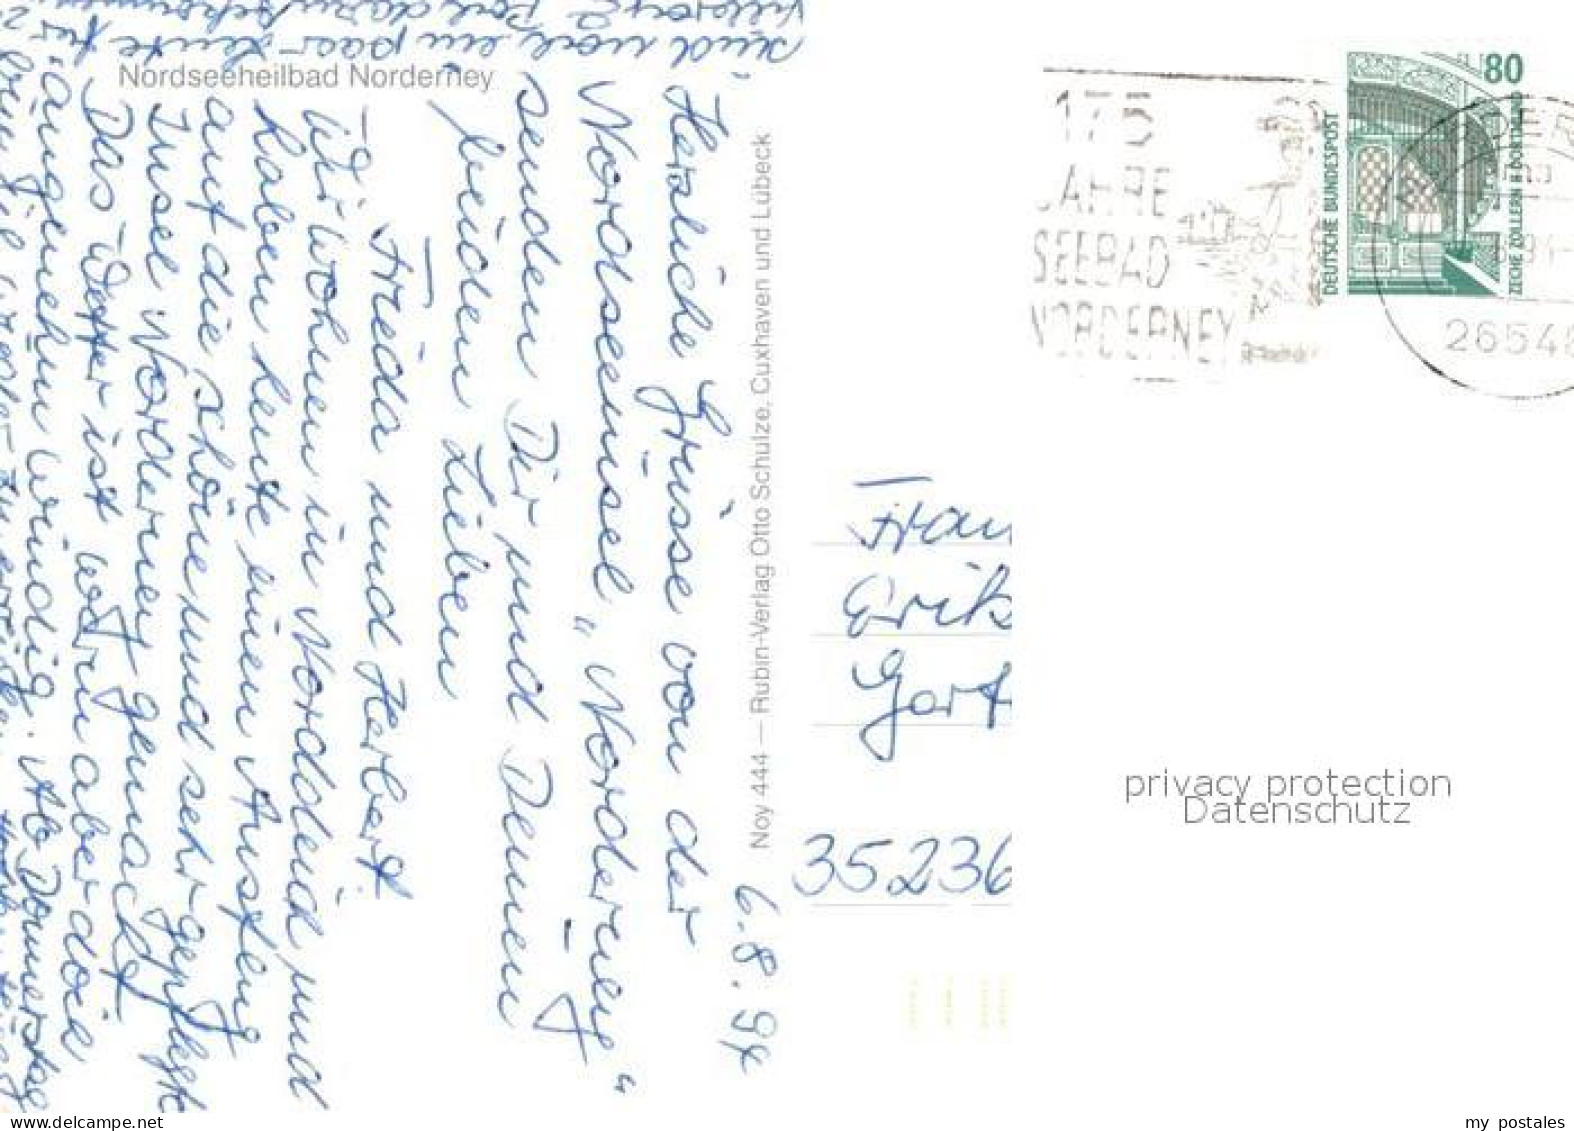 Nordseeheilbad Norderney
6.8.94
Herzliche Grüsse von der
Nordseeinsel „Norderney“
senden Dir und Deinen
beiden Lieben
Frieda und Herbert.
Wir wohnen in Norddeich und
haben heute einen Ausflug
auf die schöne und sehr gepflegte
Insel Norderney gemacht
Das Wetter ist warm aber doch
angenehm windig. Ab Donnerstag
sind noch ein paar Leute
Noy 444 — Rubin-Verlag Otto Schulze, Cuxhaven und Lübeck
175
JAHRE
SEEBAD
NORDERNEY
80
DEUTSCHE BUNDESPOST
ZECHE ZOLLERN II DORTMUND
26548
Frau
Erik
Gart
35236
privacy protection
Datenschutz
delcampe.net
my_postales